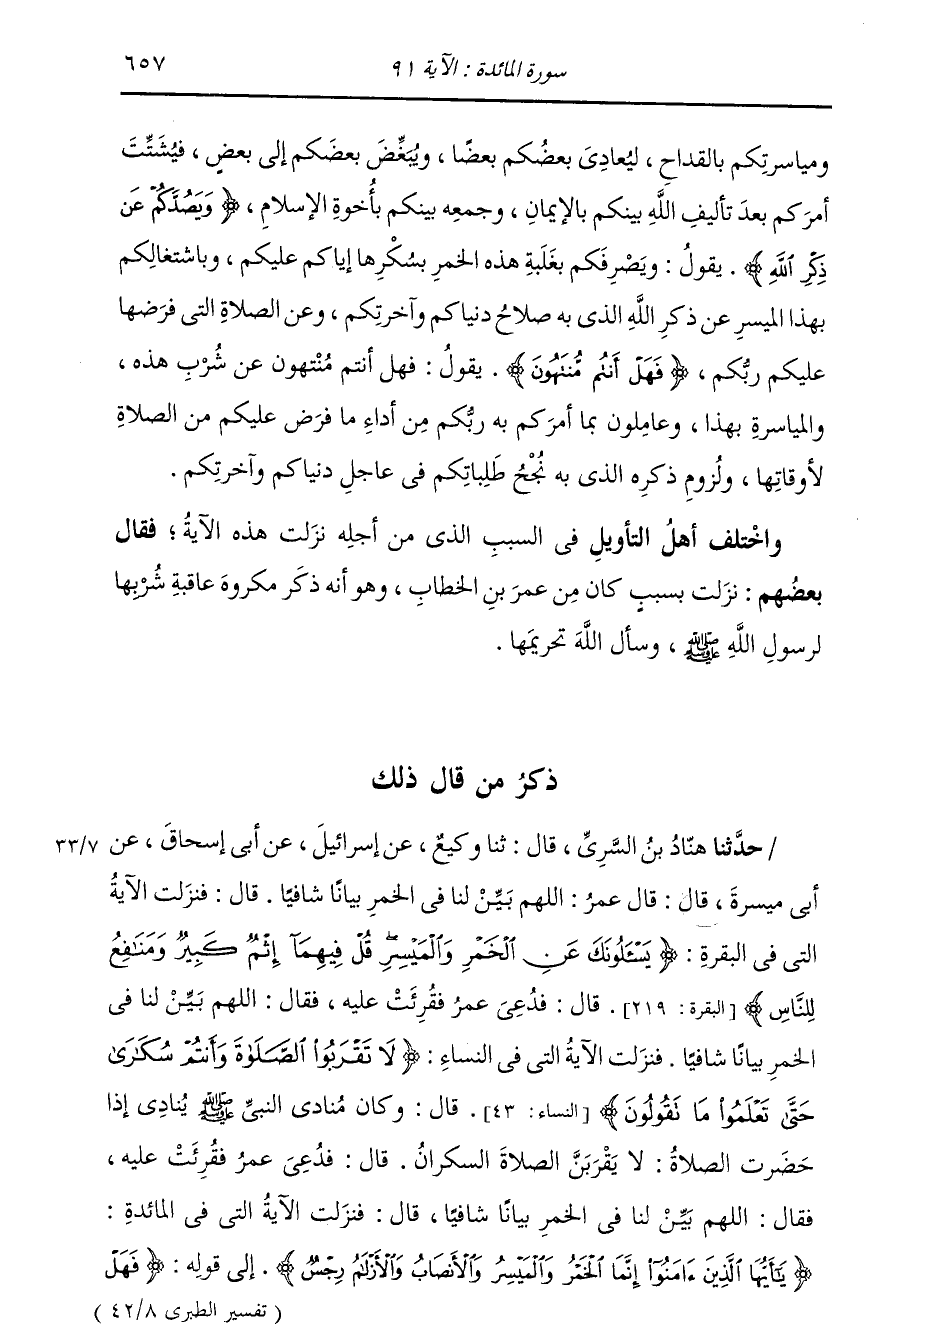 سورة المائدة : الآية ٩١ ٦٥٧
ومياسرتِكم بالقداحِ ، ليُعادِىَ بعضُكم بعضًا ، ويُبَغِّضَ بعضَكم إلى بعضٍ ، فيُشَتِّتَ
أمرَكم بعدَ تأليفِ اللَّهِ بينكم بالإيمانِ ، وجمعِه بينكم بأُخوةِ الإسلامِ ، ﴿ وَيَصُدَّكُمْ عَن
ذِكْرِ ٱللَّهِ ﴾ . يقولُ : ويَصْرِفَكم بغَلَبةِ هذه الخمرِ بسُكْرِها إياكم عليكم ، وباشتغالِكم
بهذا الميسرِ عن ذكرِ اللَّهِ الذى به صلاحُ دنياكم وآخرتِكم ، وعن الصلاةِ التى فرَضها
عليكم ربُّكم ، ﴿ فَهَلْ أَنتُم مُّنتَهُونَ ﴾ . يقولُ : فهل أنتم مُنْتهون عن شُرْبِ هذه ،
والمياسرةِ بهذا ، وعامِلون بما أمرَكم به ربُّكم مِن أداءِ ما فرَض عليكم من الصلاةِ
لأوقاتِها ، ولُزومِ ذكرِه الذى به نُجْحُ طَلِباتِكم فى عاجلِ دنياكم وآخرتِكم .
واخْتلف أهلُ التأويلِ فى السببِ الذى من أجلِه نزَلت هذه الآيةُ ؛ فقال
بعضُهم : نزَلت بسببٍ كان مِن عمرَ بنِ الخطابِ ، وهو أنه ذكَر مكروهَ عاقبةِ شُرْبِها
لرسولِ اللَّهِ ﷺ ، وسأل اللَّهَ تحريمَها .
ذكرُ من قال ذلك
/ حدَّثنا هنّادُ بنُ السَّرِىِّ ، قال : ثنا وكيعٌ ، عن إسرائيلَ ، عن أبى إسحاقَ ، عن ٣٣/٧
أبى ميسرةَ ، قال : قال عمرُ : اللهم بَيِّنْ لنا فى الخمرِ بيانًا شافيًا . قال : فنزَلت الآيةُ
التى فى البقرةِ : ﴿ يَسْـَٔلُونَكَ عَنِ ٱلْخَمْرِ وَٱلْمَيْسِرِ ۖ قُلْ فِيهِمَآ إِثْمٌ كَبِيرٌ وَمَنَٰفِعُ
لِلنَّاسِ ﴾ [البقرة : ٢١٩] . قال : فدُعِىَ عمرُ فقُرِئَتْ عليه ، فقال : اللهم بَيِّنْ لنا فى
الخمرِ بيانًا شافيًا . فنزَلت الآيةُ التى فى النساءِ : ﴿ لَا تَقْرَبُوا۟ ٱلصَّلَوٰةَ وَأَنتُمْ سُكَٰرَىٰ
حَتَّىٰ تَعْلَمُوا۟ مَا تَقُولُونَ ﴾ [النساء : ٤٣] . قال : وكان مُنادى النبىِّ ﷺ يُنادِى إذا
حَضَرت الصلاةُ : لا يَقْرَبَنَّ الصلاةَ السكرانُ . قال : فدُعِىَ عمرُ فقُرِئَتْ عليه ،
فقال : اللهم بَيِّنْ لنا فى الخمرِ بيانًا شافيًا ، قال : فنزَلت الآيةُ التى فى المائدةِ :
﴿ يَٰٓأَيُّهَا ٱلَّذِينَ ءَامَنُوٓا۟ إِنَّمَا ٱلْخَمْرُ وَٱلْمَيْسِرُ وَٱلْأَنصَابُ وَٱلْأَزْلَٰمُ رِجْسٌ ﴾ . إلى قولِه : ﴿ فَهَلْ
( تفسير الطبرى ٤٢/٨ )